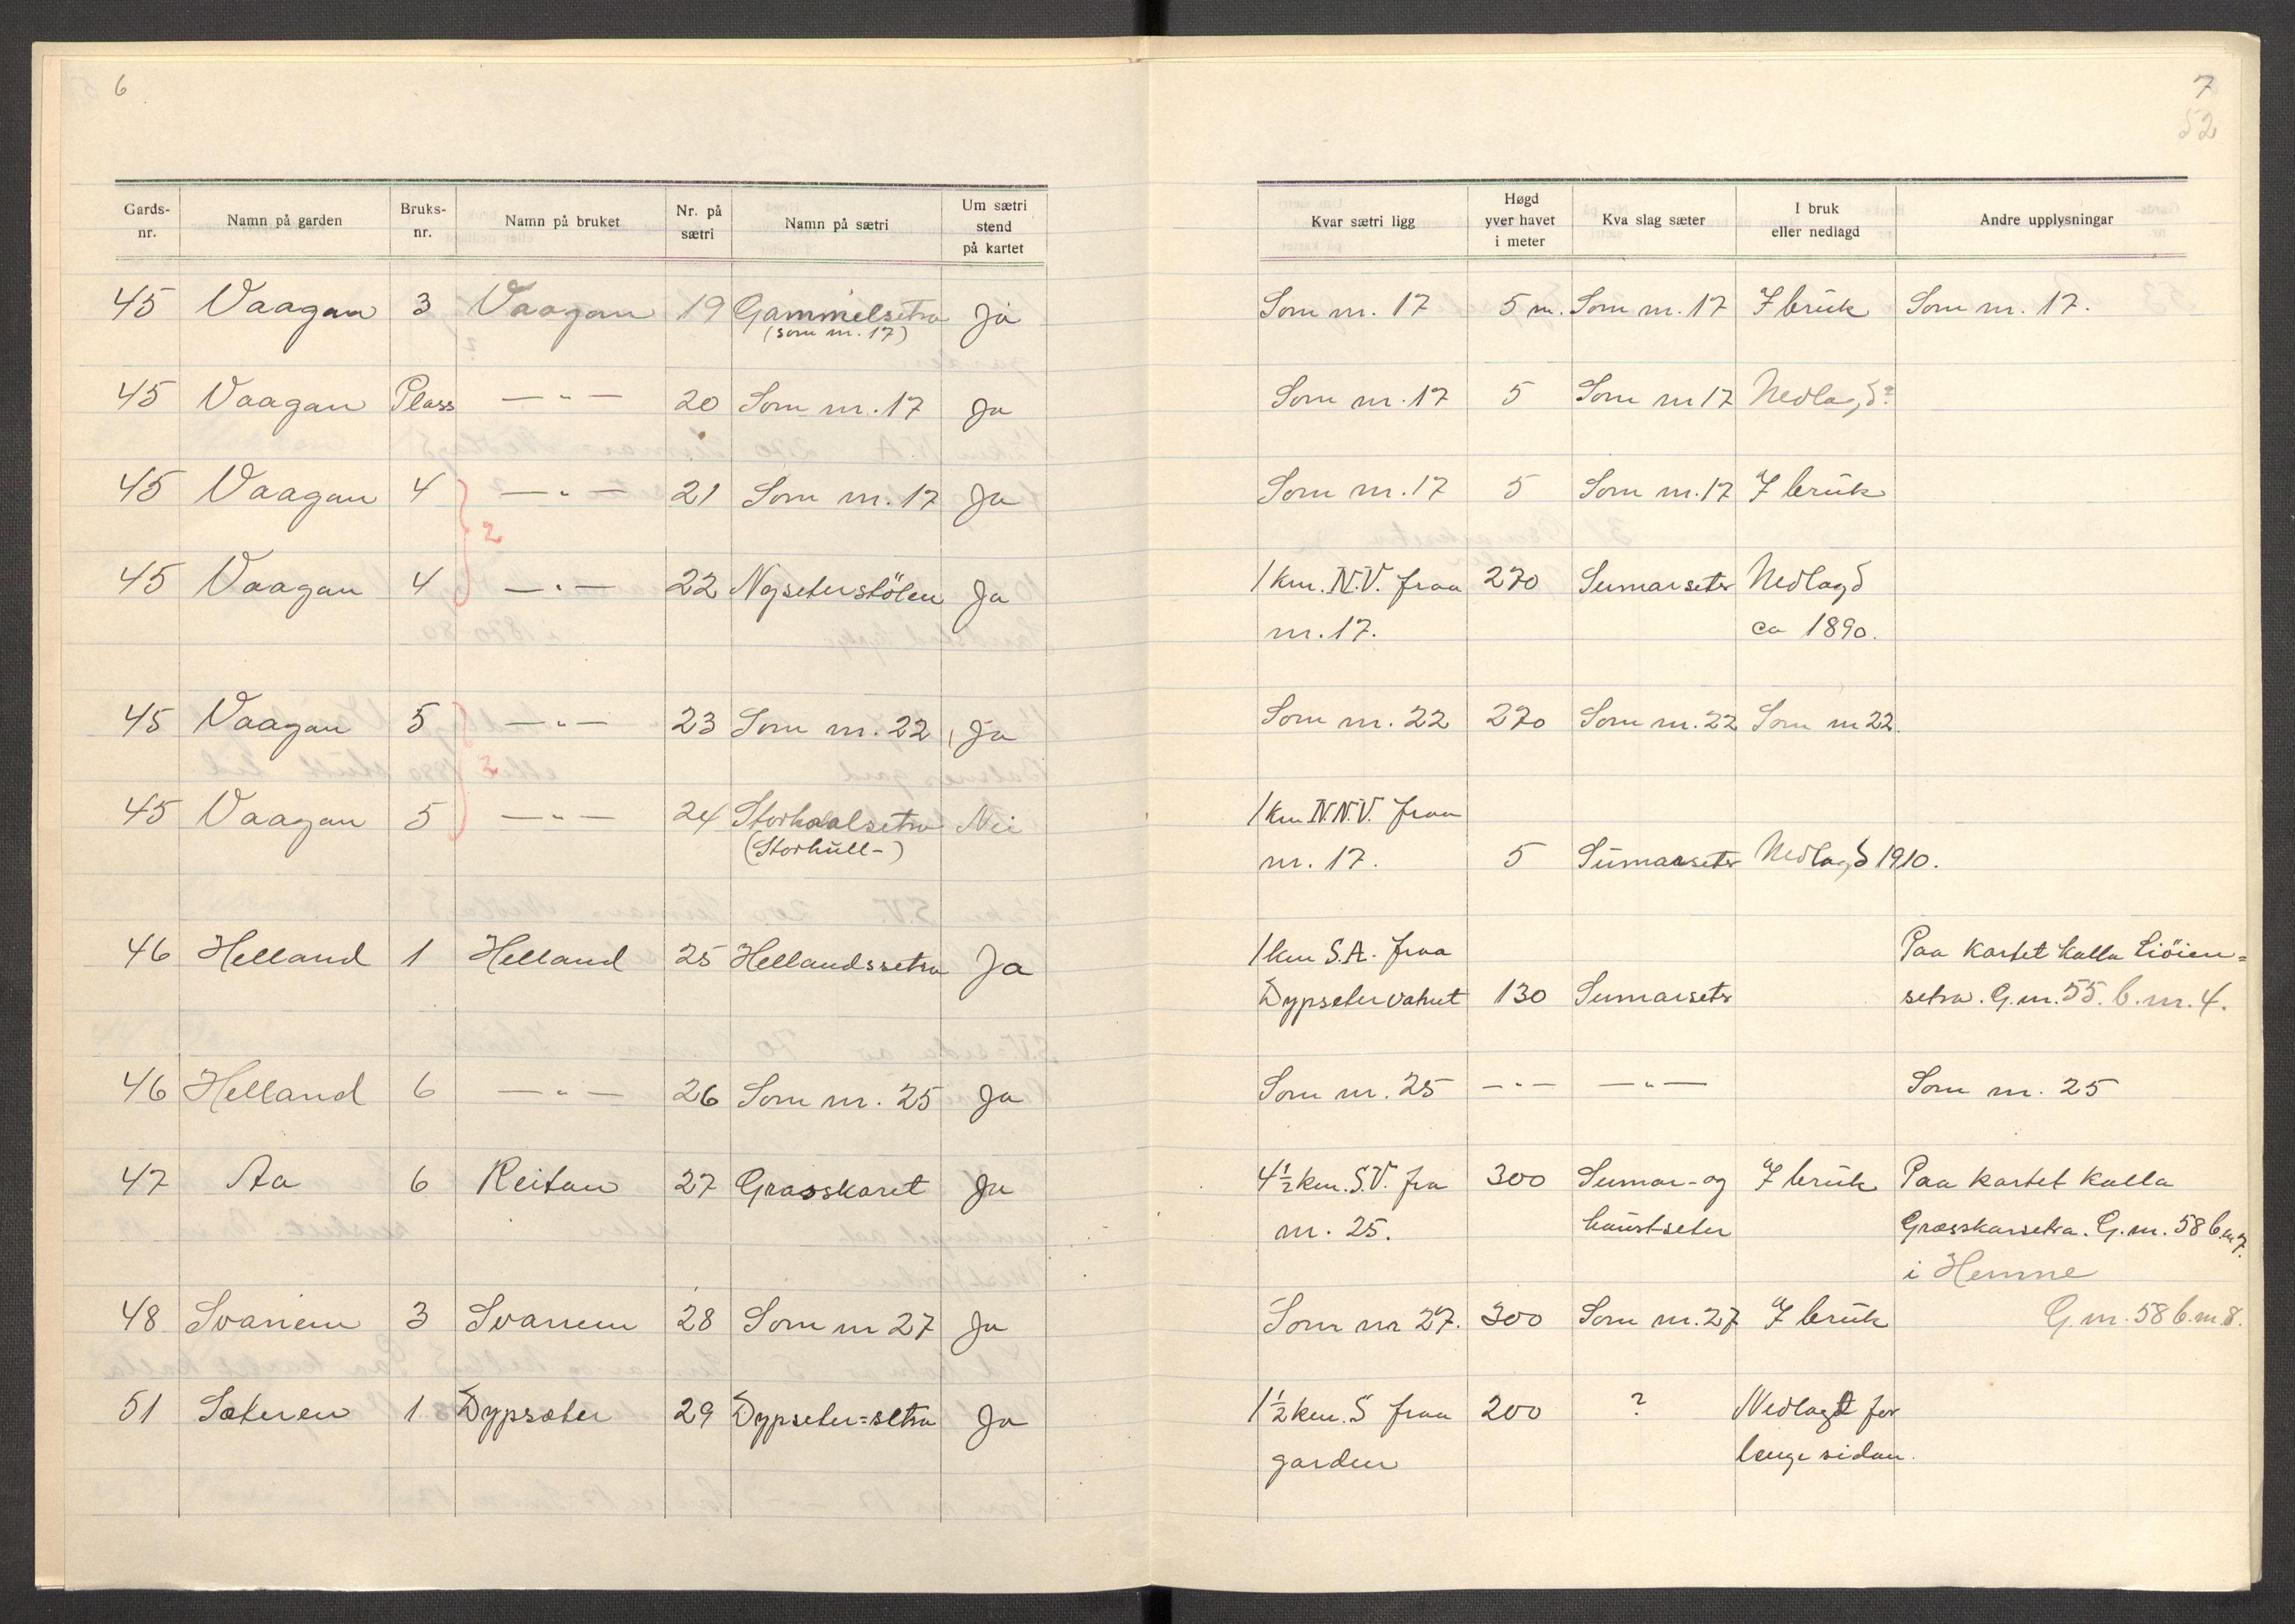 6
Gards-nr. Namn på garden Bruks-nr. Namn på bruket Nr. på sætri Namn på sætri Um sætri stend på kartet
45 Vaagan 3 Vaagan 19 Gammelsetra Ja
(som nr. 17)
45 Vaagan Plass —〃— 20 Som nr. 17 Ja
45 Vaagan 4 —〃— 21 Som nr. 17 Ja
2
45 Vaagan 4 —〃— 22 Nyseterstölen Ja
45 Vaagan 5 —〃— 23 Som nr. 22 Ja
2
45 Vaagan 5 —〃— 24 Storhaalsetra Nei
(Storhull-)
46 Helland 1 Helland 25 Hellandssetra Ja
46 Helland 6 —〃— 26 Som nr. 25 Ja
47 Aa 6 Reitan 27 Grasskaret Ja
48 Svanem 3 Svanem 28 Som nr 27 Ja
51 Sæteren 1 Dypsæter 29 Dypseter=setra Ja
7
52
Kvar sætri ligg Høgd yver havet i meter Kva slag sæter I bruk eller nedlagd Andre upplysningar
Som nr. 17 5 m. Som nr. 17 I bruk Som nr. 17.
Som nr. 17 5 Som nr 17 Nedlagd?
Som nr. 17 5 Som nr. 17 I bruk
1 km. N.V. fraa 270 Sumarseter Nedlagd
nr. 17. ca 1890.
Som nr. 22 270 Som nr. 22 Som nr 22.
1 km N.N.V. fraa
nr. 17. 5 Sumarseter Nedlagd 1910.
1 km S.A. fraa Paa kartet kalla Liöien=
Dypsetervatnet 130 Sumarseter setra. G.nr. 55. b.nr. 4.
Som nr. 25 —〃— —〃— Som nr. 25
4½ km. S.V. fra 300 Sumar- og I bruk Paa kartet kalla
nr. 25. haustseter Grasskarsetra. G.nr. 58 b.nr 7.
i Hemne
Som nr 27. 300 Som nr. 27 I bruk G.nr. 58 b.nr. 8.
1½ km. S fraa 200 ? Nedlagt for
garden lenge sidan.